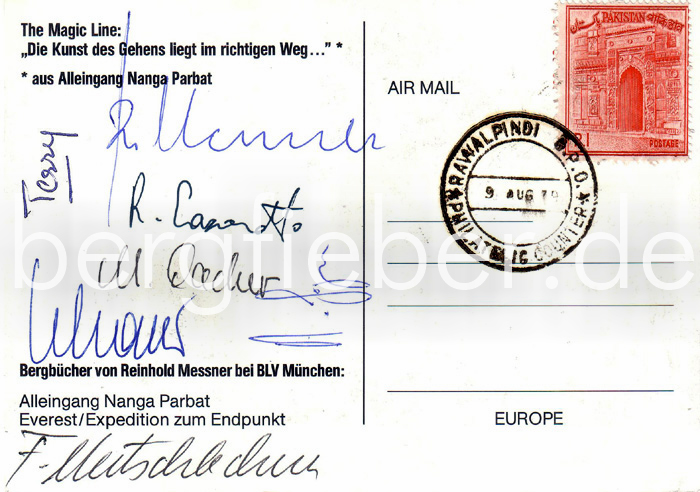 The Magic Line:
„Die Kunst des Gehens liegt im richtigen Weg…” *
* aus Alleingang Nanga Parbat
AIR MAIL
PAKISTAN
POSTAGE
RAWALPINDI G.P.O.
9 AUG 79
PHILATELIC COUNTER
R. Messner
Terry
R. Casarotto
M Dacher
bergfieber.de
Bergbücher von Reinhold Messner bei BLV München:
Alleingang Nanga Parbat
Everest/Expedition zum Endpunkt
EUROPE
F. Mutschlechner